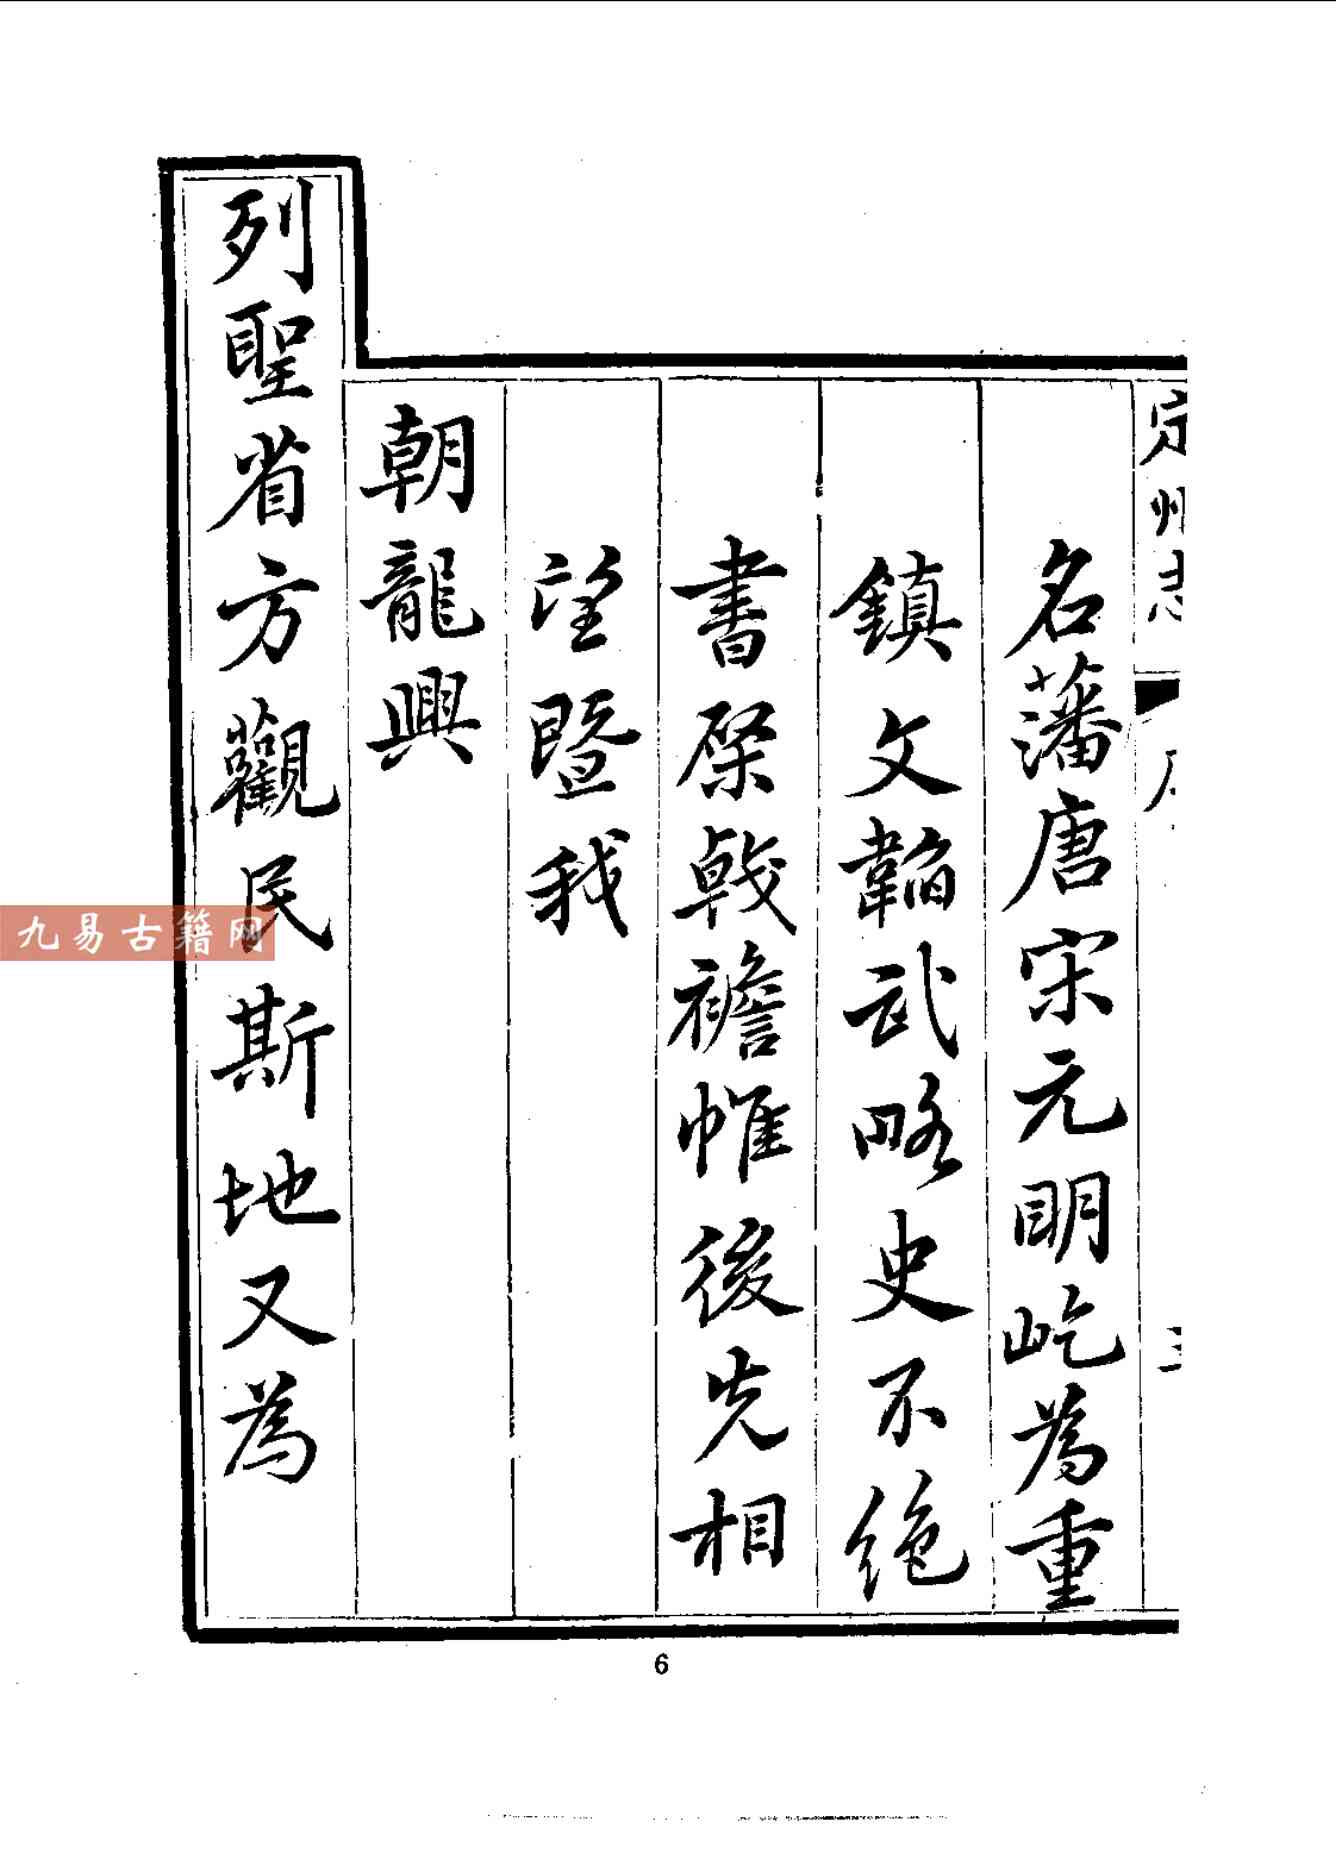 定州志
名藩唐宋元明屹為重
鎮文韜武略史不絶
書棨戟襜帷後先相
望暨我
朝龍興
列聖省方觀民斯地又為
6
九易古籍网